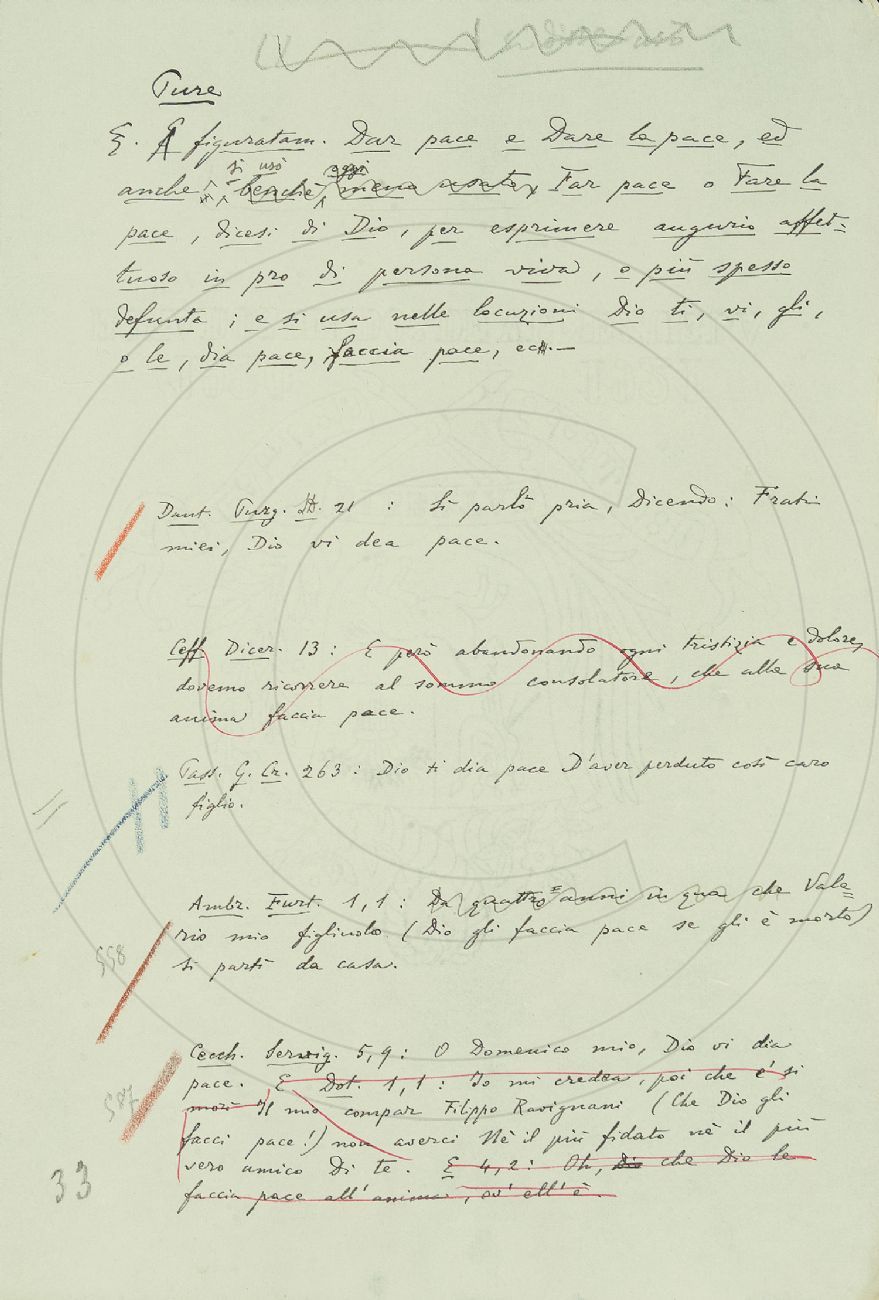 Ture
E figuratam. Dar pace e Dare la pace, ed
si usò oggi
anche benché meno usato, Far pace o Fare la
pace, dicesi di Dio, per esprimere augurio affet=
tuoso in pro di persona viva, o più spesso
defunta; e si usa nelle locuzioni Dio ti, vi, gli,
o le, dia pace, faccia pace, ec.—
Dant. Purg. 21 : Si parlò pria, dicendo: Frati
miei, Dio vi dea pace.
Ceff. Dicer. 13 : E però abandonando ogni tristizia e dolore,
dovemo ricorrere al sommo consolatore, che alla sua
anima faccia pace.
Tass. G. Cr. 263 : Dio ti dia pace D'aver perduto così caro
figlio.
Ambr. Furt. 1,1 : Da quattro anni in qua che Vale=
rio mio figliuolo (Dio gli faccia pace se gli è morto)
si partì da casa.
558
Cecch. Servig. 5,9 : O Domenico mio, Dio vi dia
pace. E Dot. 1,1 : Io mi credea, poi che e' si
morì Il mio compar Filippo Ravignani (Che Dio gli
587
facci pace!) non averci Nè il più fidato nè il più
vero amico Di te. E 4,2 : Oh, Dio che Dio le
faccia pace all'anima, ov'ell'è.
33